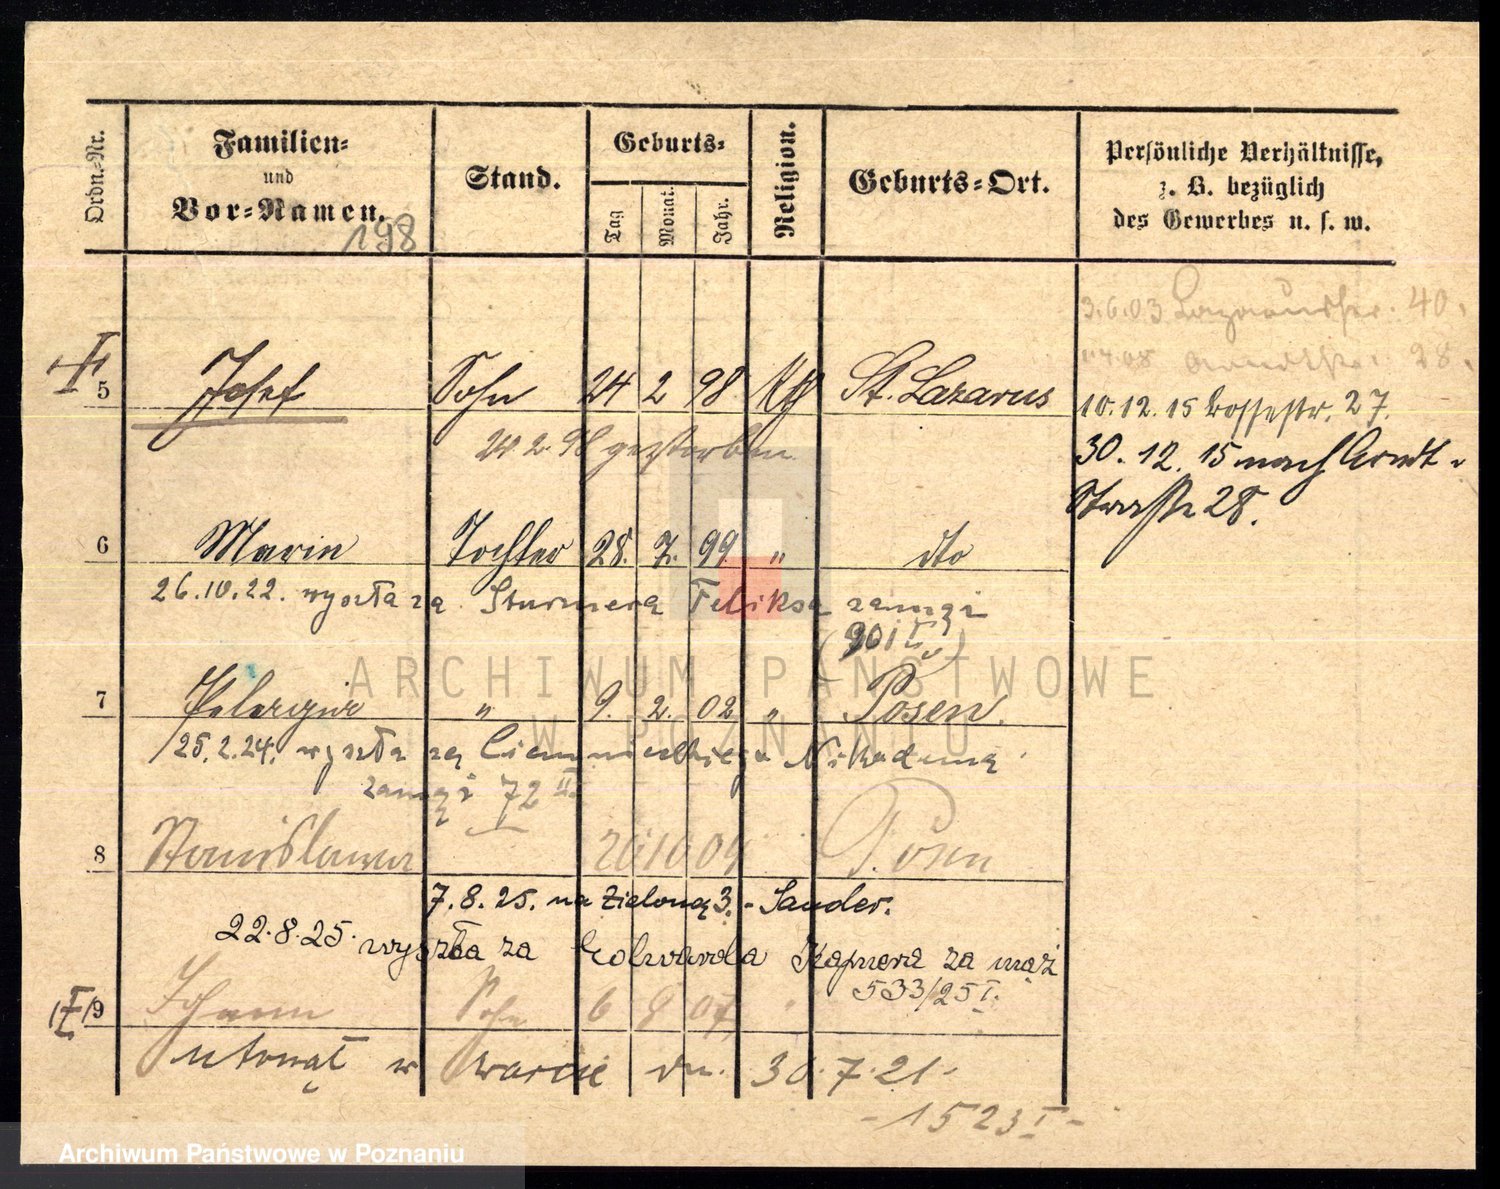 Ordn.-Nr.
Familien-
und
Vor-Namen.
198
Stand.
Geburts-
Tag
Monat.
Jahr.
Religion.
Geburts-Ort.
Persönliche Verhältnisse,
z. B. bezüglich
des Gewerbes u. s. w.
3.6.03 40.
28.
5 Josef Sohn 24 2 98 Kth St. Lazarus
10.12.15 Vossestr. 27.
24.2.98 gestorben
30.12.15 nach Arndt-
Strasse 28.
6 Marie Tochter 28. 7. 99. " dto
26.10.22. wyszła za Sturmera Feliksa zamąż
(901 I)
7 Pelagia " 9. 2. 02 " Posen.
25.2.24. wyszła za Nikodema
zamąż 72 II
8 Stanislawa 20 10 04 Posen
7.8.25. na Zieloną 3. - Sander.
22.8.25. wyszła za Kaspera za mąż
533/25 I.
9 Johann Sohn 6 8 07 "
utonął w Warcie dn. 30.7.21.
- 1523 I -
ARCHIWUM PAŃSTWOWE
W POZNANIU
Archiwum Państwowe w Poznaniu